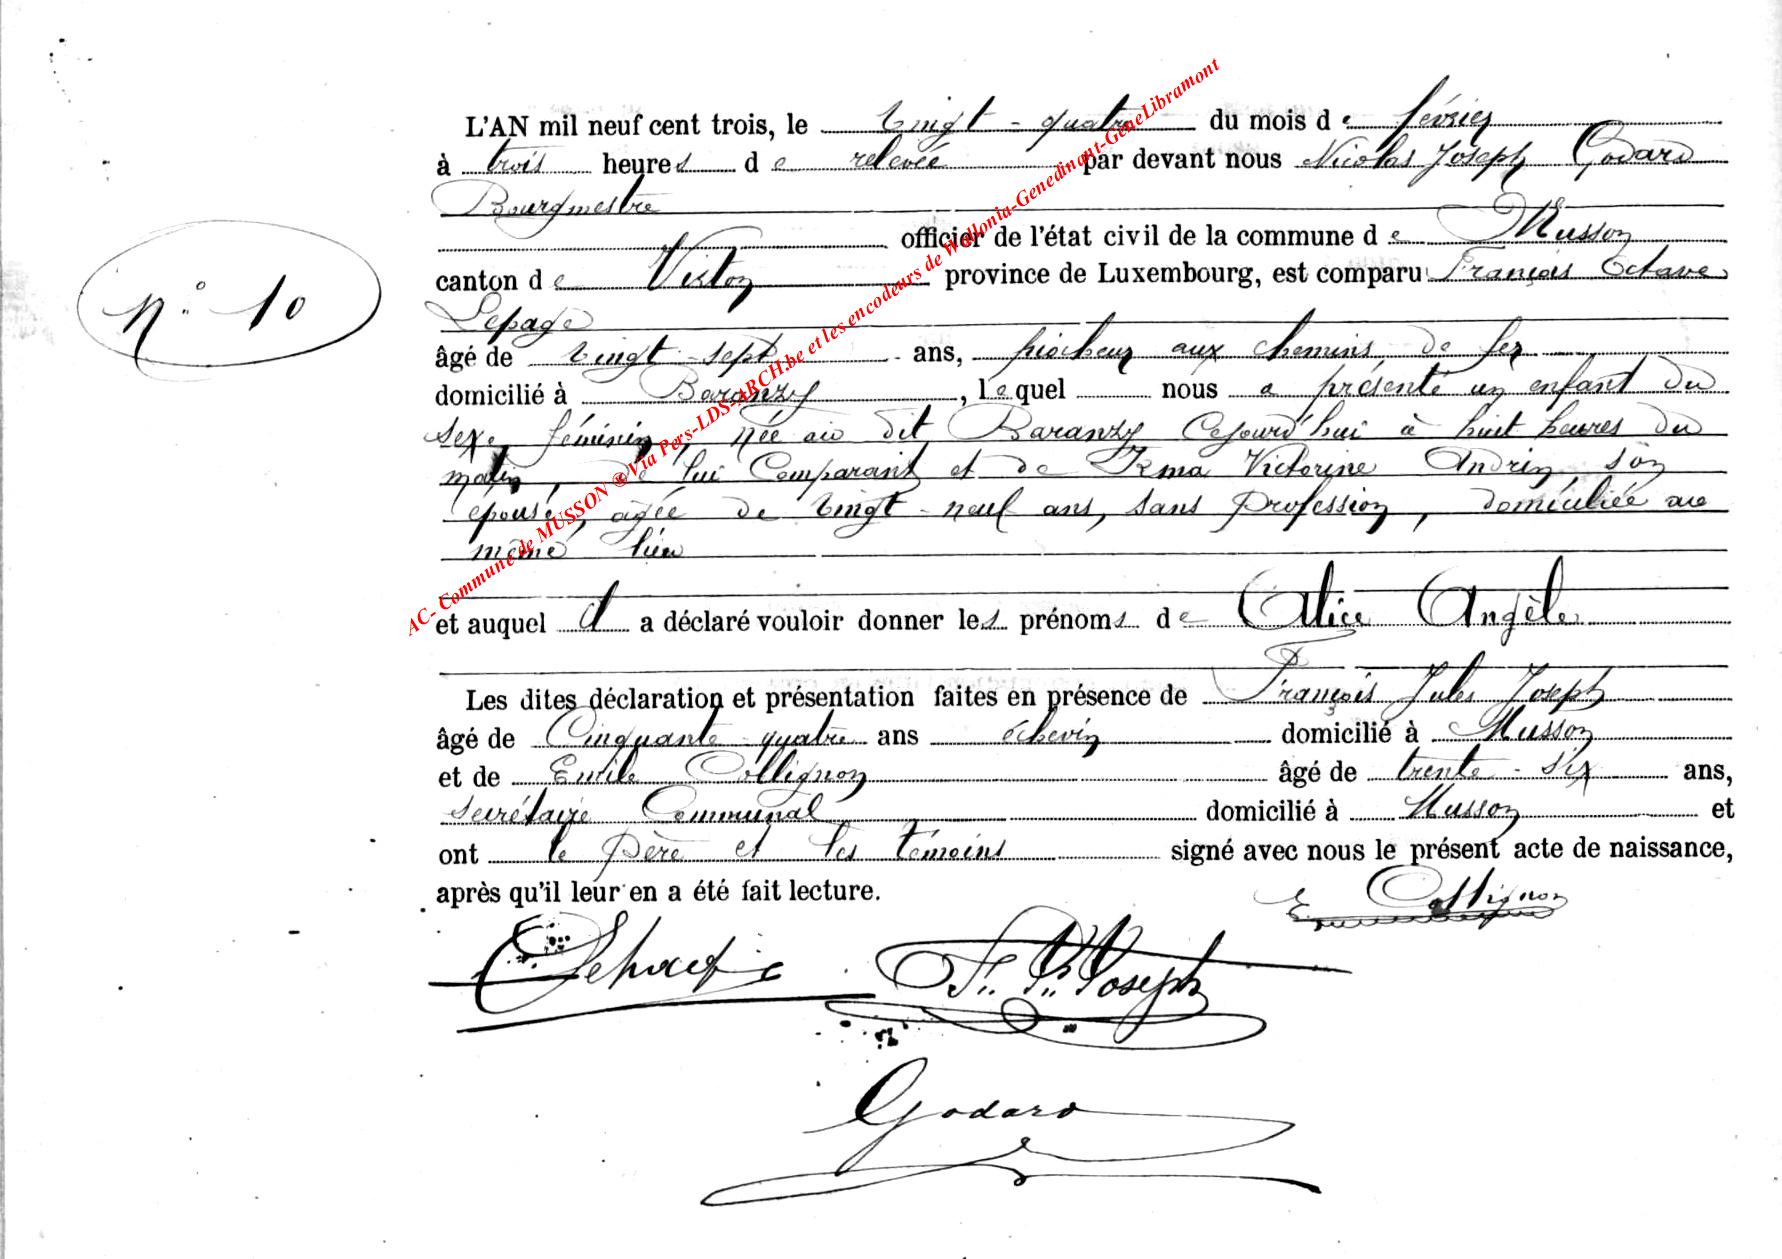 L'AN mil neuf cent trois, le vingt-quatre du mois de février
à trois heures de relevée par devant nous Nicolas Joseph Godard
Bourgmestre
officier de l'état civil de la commune de Musson
canton de Virton province de Luxembourg, est comparu François Octave
Lepage
âgé de vingt-sept ans, piocheur aux chemins de fer
domicilié à Baranzy, lequel nous a présenté un enfant du
sexe féminin, née au dit Baranzy cejourd'hui à huit heures du
matin, de lui Comparant et de Irma Victorine Andrin son
épouse, agée de vingt-neuf ans, sans profession, domiciliée au
même lieu
N° 10
et auquel il a déclaré vouloir donner les prénoms de Alice Angèle
Les dites déclaration et présentation faites en présence de François Jules Joseph
âgé de Cinquante-quatre ans échevin domicilié à Musson
et de Emile Collignon âgé de trente-six ans,
secrétaire Communal domicilié à Musson et
ont le père et les témoins signé avec nous le présent acte de naissance,
après qu'il leur en a été fait lecture.
E Collignon
Lepage Joseph
Godard
AC- Commune de MUSSON ® Via Pers-LDS-ARCH.be et les encodeurs de Wallonia-Genedinant-GeneLibramont